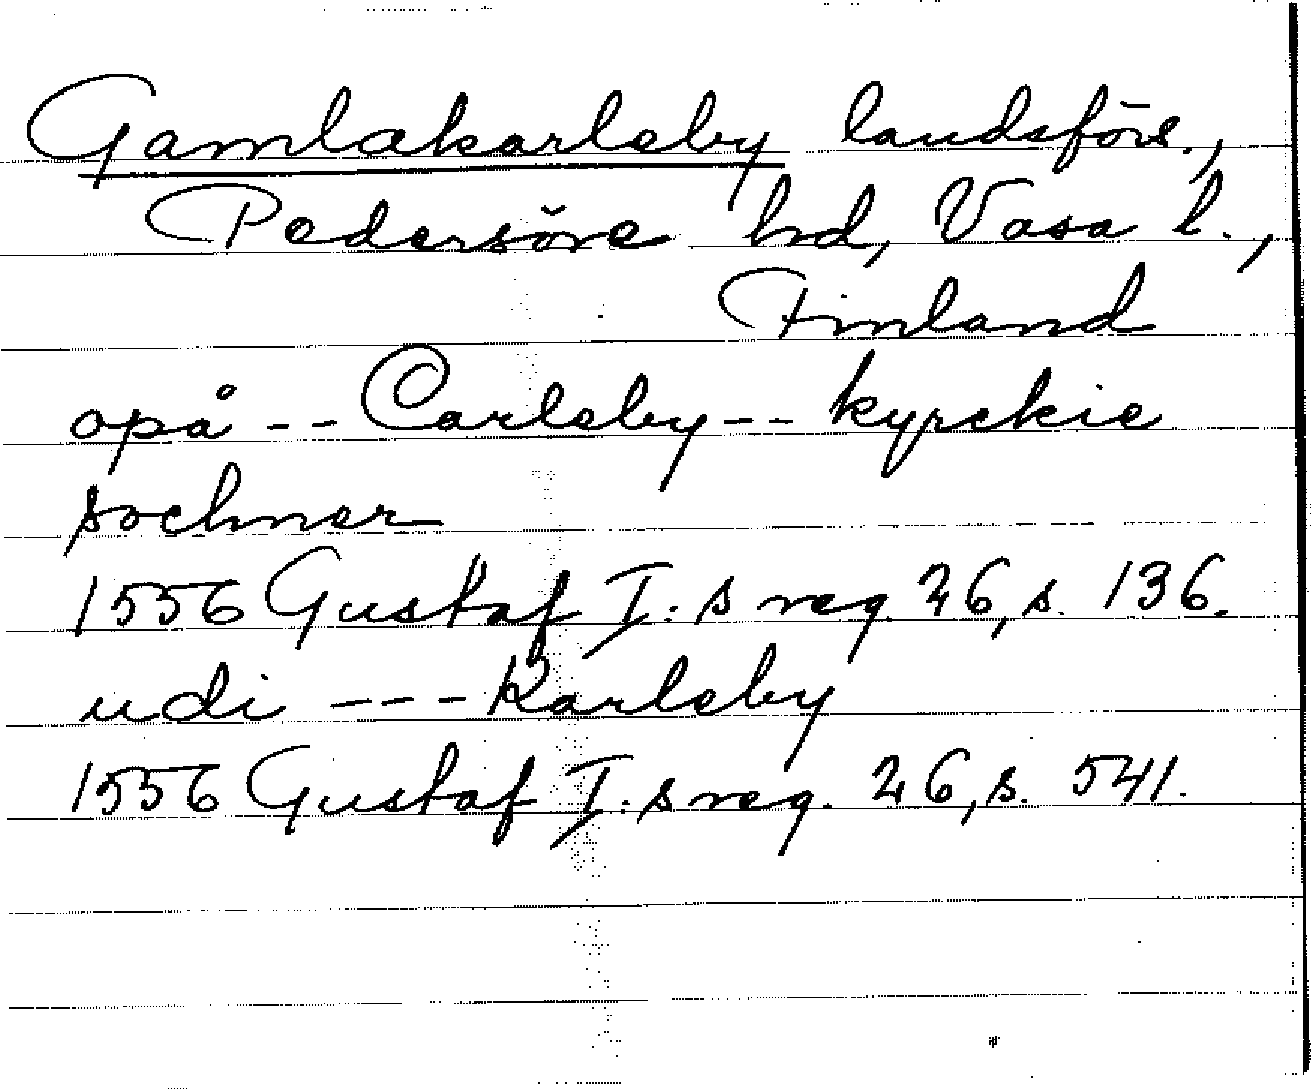 Gamlakarleby landsförs.,
Pedersöre hd, Vasa l.,
Finland
opå -- Carleby -- kyrckie
sochner
1556 Gustaf I:s reg. 26, s. 136.
udi --- Karleby
1556 Gustaf I:s reg. 26, s. 541.